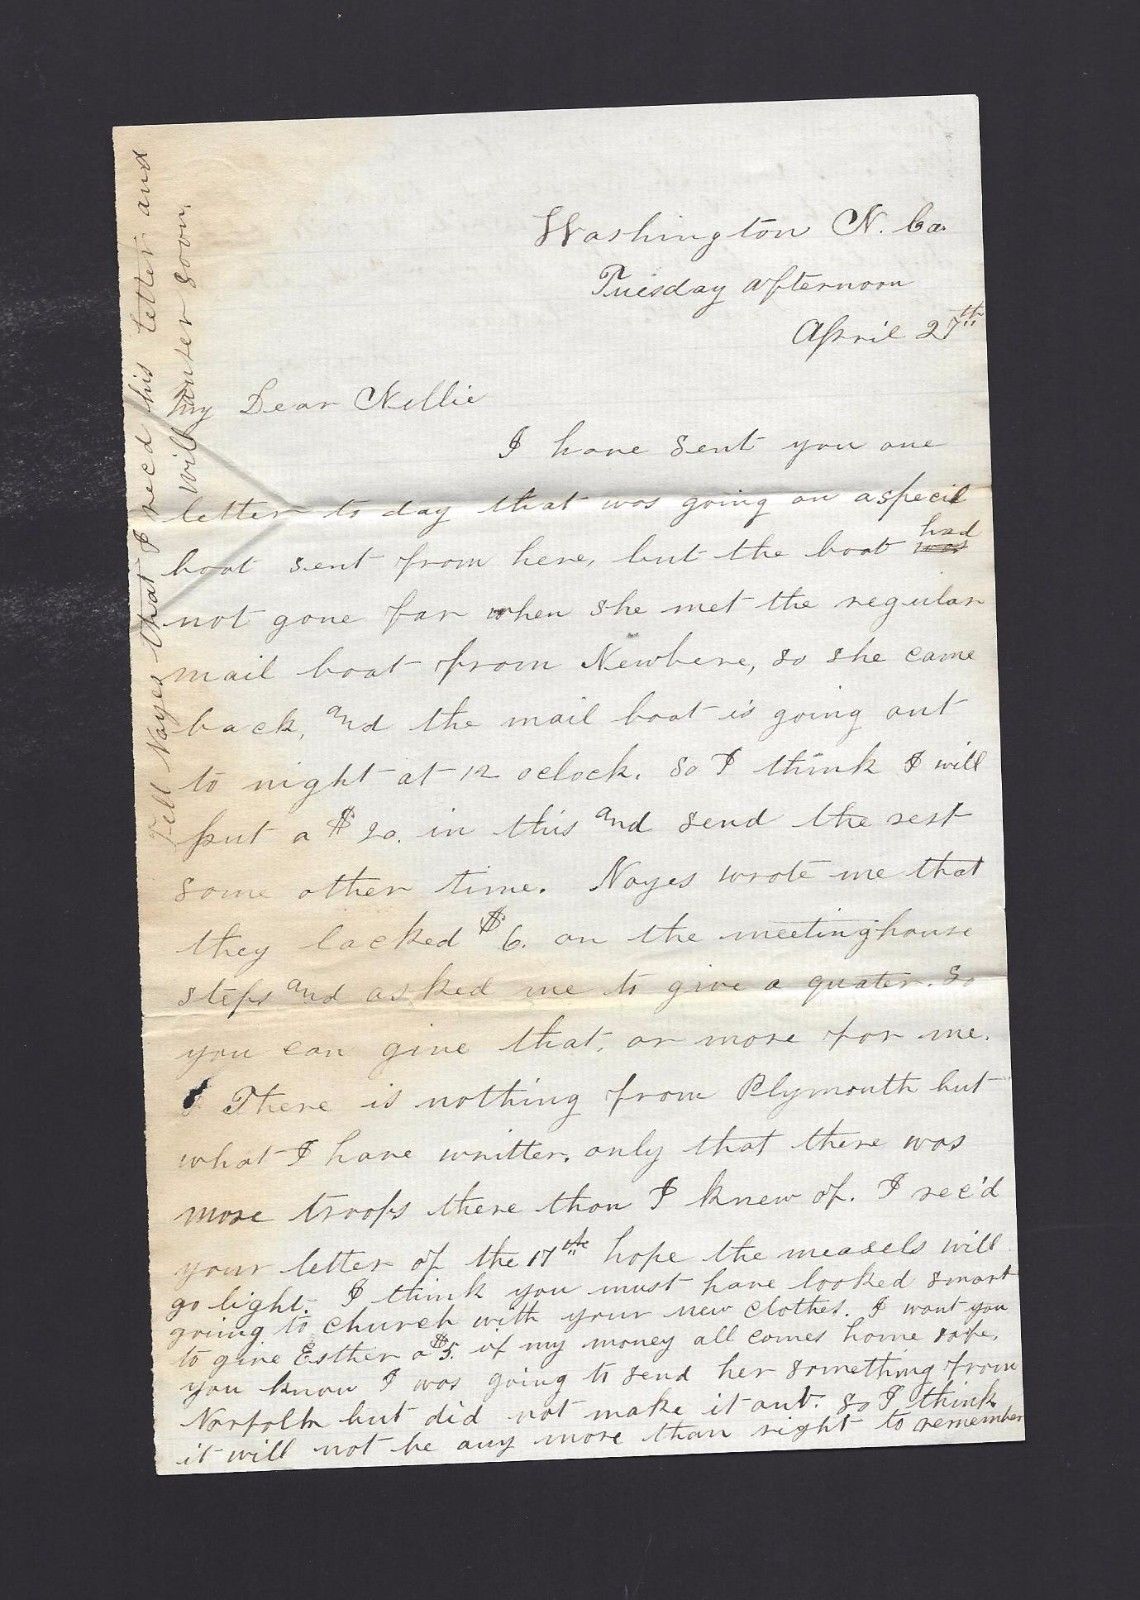 Washington N. Ca.
Tuesday afternoon
April 27th
My Dear Nellie
I have sent you one
letter to day that was going on a specil
boat sent from here, but the boat had
not gone far when she met the regular
mail boat from Newbere, so she came
back, and the mail boat is going out
to night at 12 oclock. so I think I will
put a $20. in this and send the rest
some other time. Noyes wrote me that
they lacked $6. on the meetinghouse
steps and asked me to give a quater. So
you can give that, or more for me.
There is nothing from Plymouth but
what I have written, only that there was
more troops there than I knew of. I rec'd
your letter of the 17th hope the measels will
go light. I think you must have looked smart
going to church with your new clothes. I want you
to give Esther a $5. if my money all comes home safe.
you know I was going to send her something from
Norfolk but did not make it out. so I think
it will not be any more than right to remember
Tell Noyes that I recd his letter and
will answer soon.